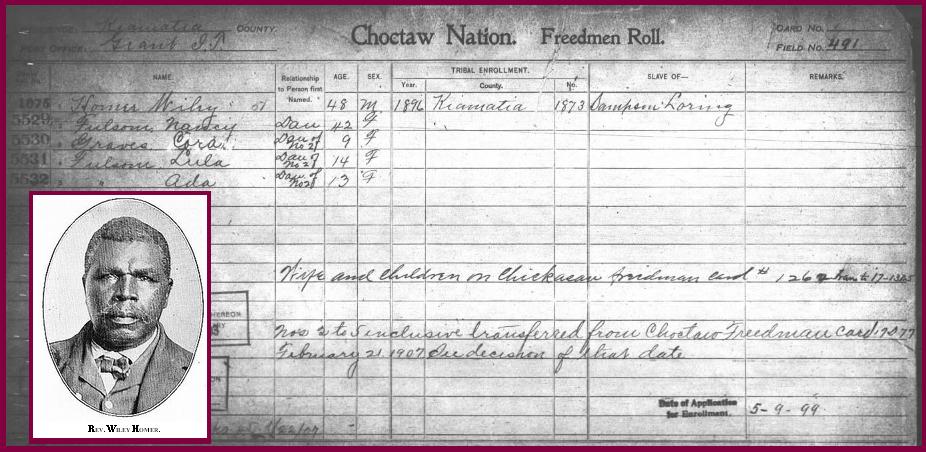 Kiamatia COUNTY.
POST OFFICE: Grant I.T.
Choctaw Nation. Freedmen Roll.
CARD NO.
FIELD NO. 491
NAME.
Relationship to Person first Named.
AGE.
SEX.
TRIBAL ENROLLMENT.
Year.
County.
No.
SLAVE OF—
REMARKS.
1875 Homer Wiley 51 48 M 1896 Kiamatia 1873 Sampson Loring
5529 Fulsom, Nancy Dau 42 F
5530 Graves, Cora Dau of No 2 9 F
5531 Fulsom Lula Dau of No 2 14 F
5532 " Ada Dau of No 2 13 F
Wife and children on Chickasaw freedman card # 1262
HEREON
Nos 2 to 5 inclusive transferred from Choctaw Freedman card
February 21 1907 See decision of that date
Date of Application for Enrollment. 5-9-99
REV. WILEY HOMER.